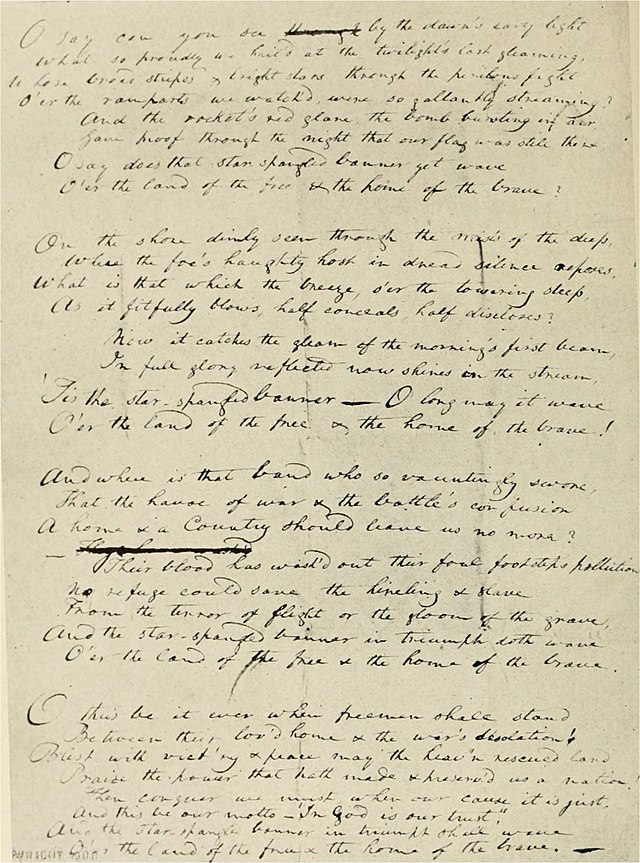 O say can you see through by the dawn's early light
What so proudly we hail'd at the twilight's last gleaming,
Whose broad stripes & bright stars through the perilous fight
O'er the ramparts we watch'd, were so gallantly streaming?
And the rocket's red glare, the bomb bursting in air,
Gave proof through the night that our flag was still there
O say does that star spangled banner yet wave
O'er the land of the free & the home of the brave?
On the shore dimly seen through the mists of the deep,
Where the foe's haughty host in dread silence reposes,
What is that which the breeze, o'er the towering steep,
As it fitfully blows, half conceals, half discloses?
Now it catches the gleam of the morning's first beam,
In full glory reflected now shines in the stream,
'Tis the star-spangled banner — O long may it wave
O'er the land of the free & the home of the brave!
And where is that band who so vauntingly swore,
That the havoc of war & the battle's confusion
A home & a Country should leave us no more?
—
Their blood has wash'd out their foul footsteps pollution
No refuge could save the hireling & slave
From the terror of flight or the gloom of the grave,
And the star-spangled banner in triumph doth wave
O'er the land of the free & the home of the brave.
O thus be it ever when freemen shall stand
Between their lov'd home & the war's desolation!
Blest with vict'ry & peace may the heav'n rescued land
Praise the power that hath made & preserv'd us a nation.
Then conquer we must, when our cause it is just,
And this be our motto — "In God is our trust"
And the star-spangled banner in triumph shall wave
O'er the land of the free & the home of the brave. —